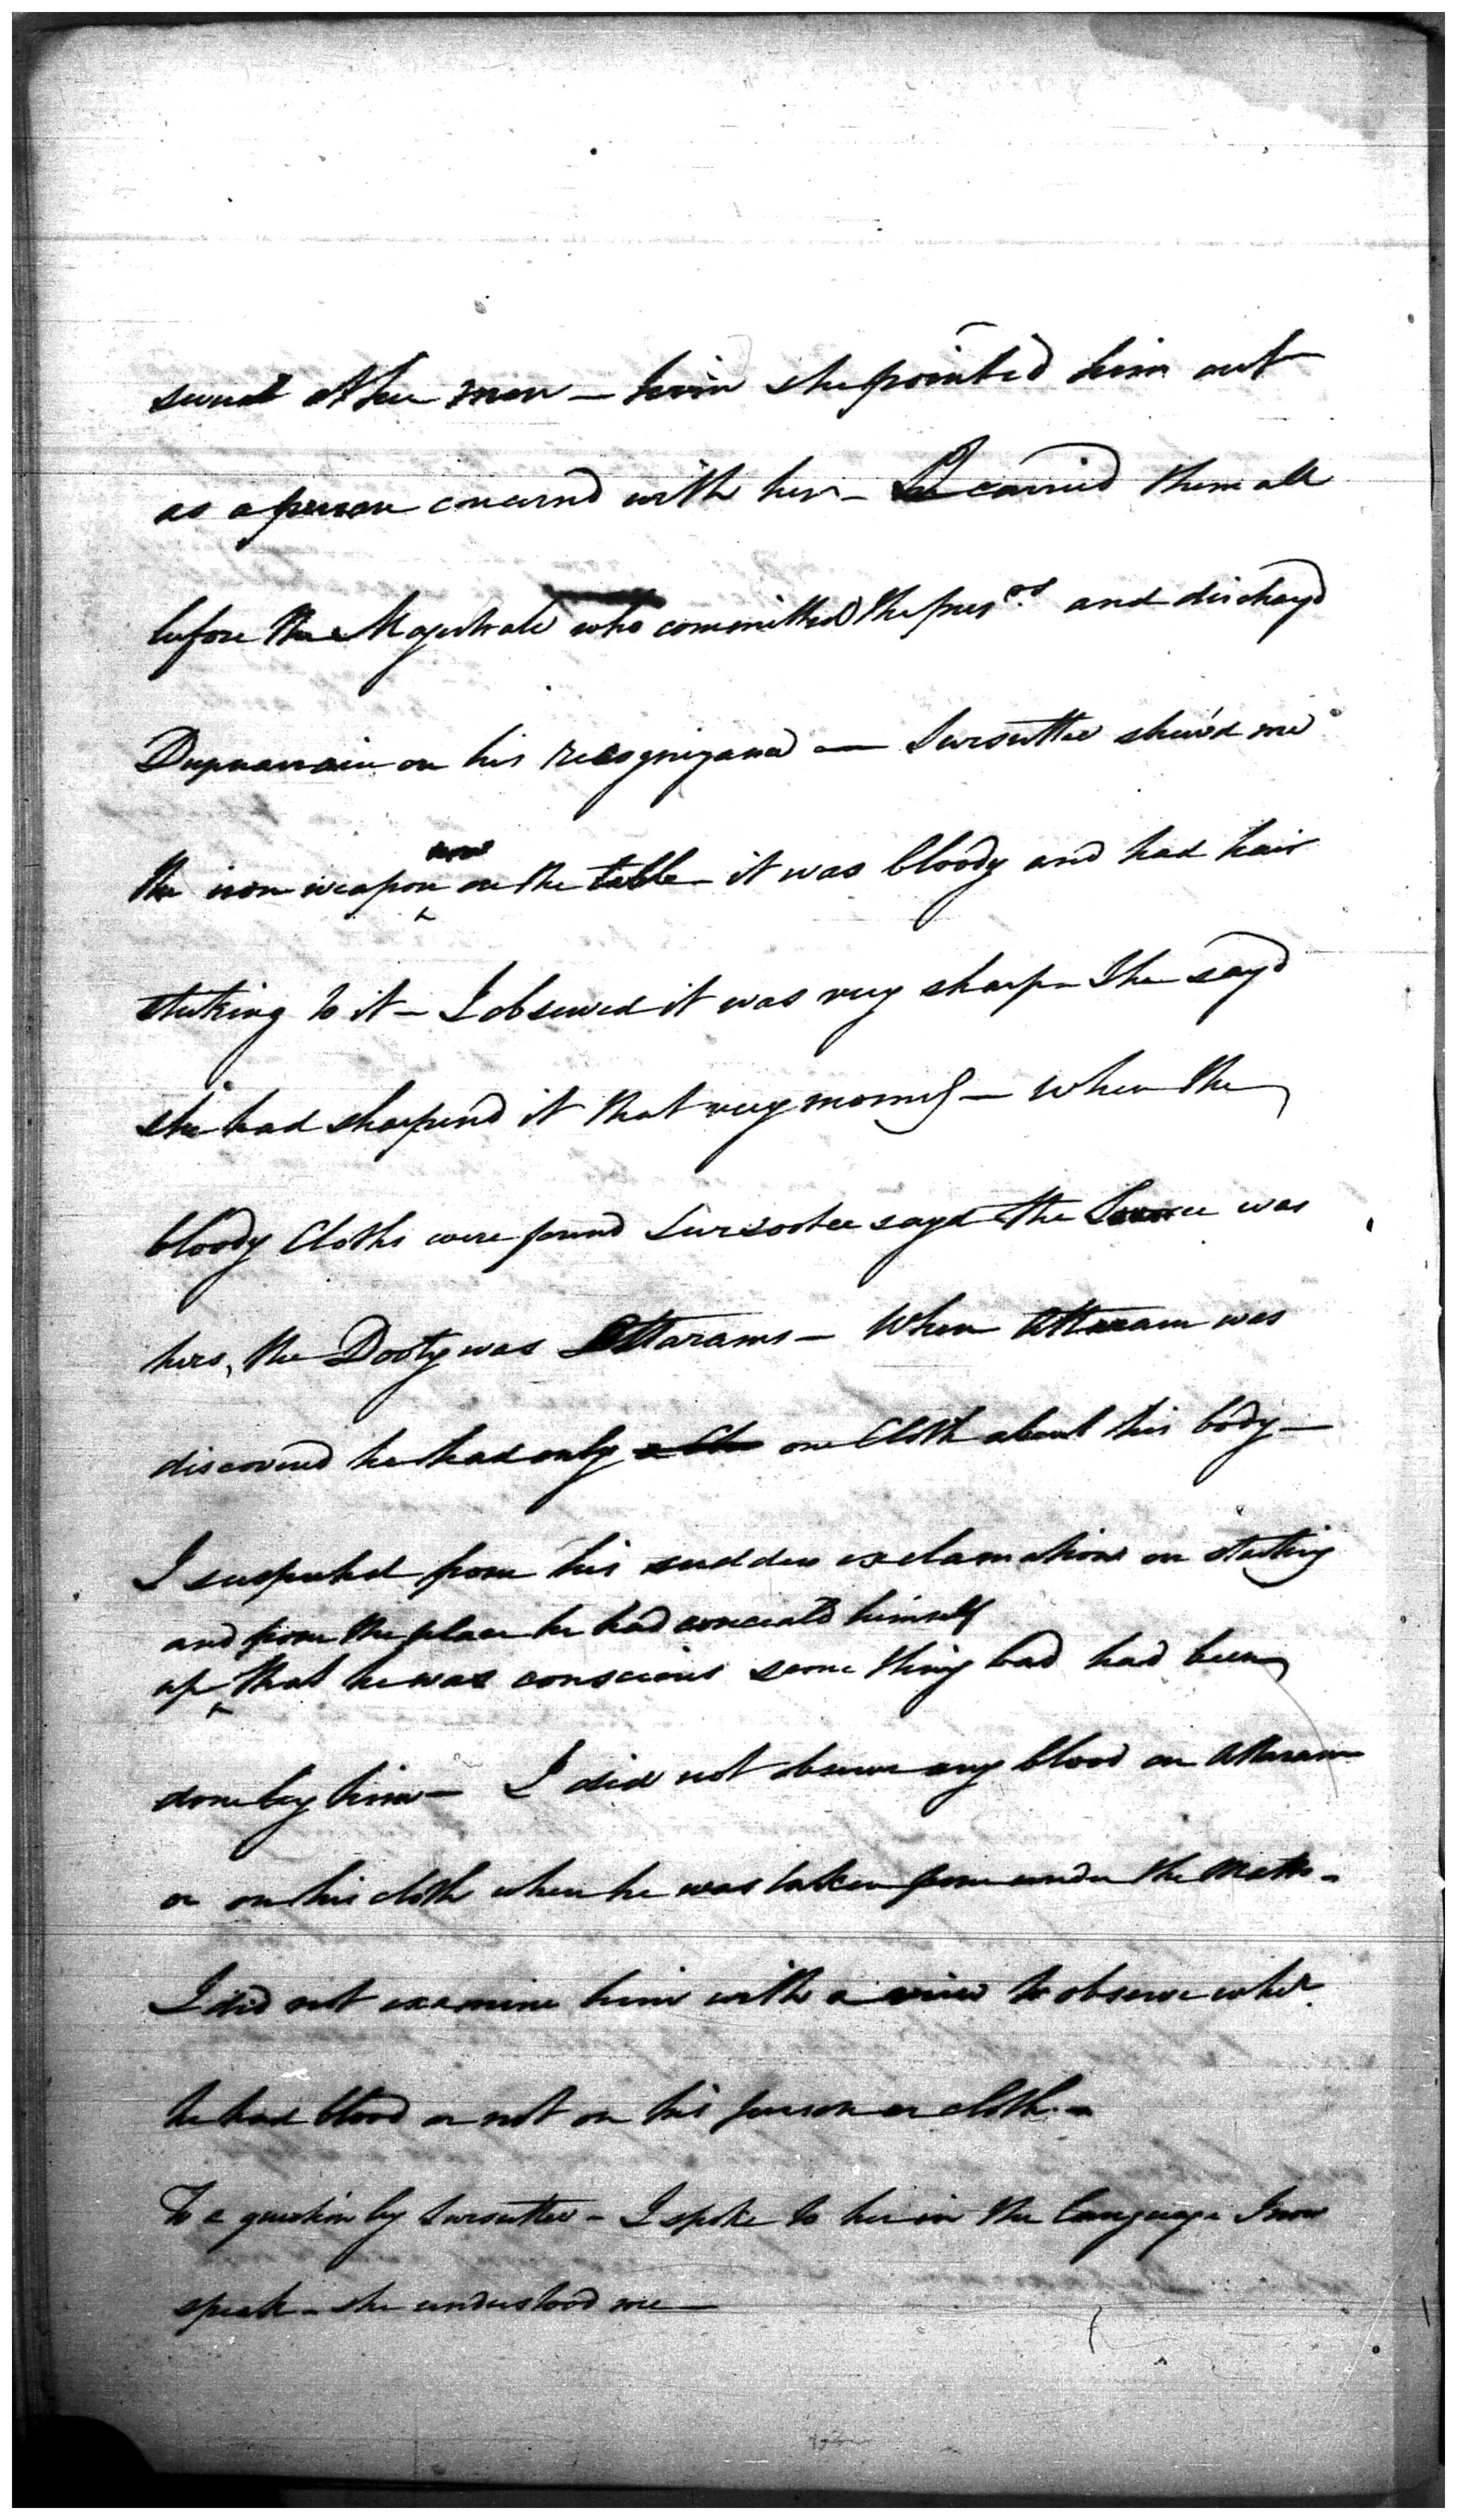 several other men — she pointed him out
as a person concernd with her — I carried them all
before the Magistrate who committed the pris.rs and dischargd
on his recognizance — Sursuttee shew'd me
the iron weapon now on the table — it was bloody and had hair
sticking to it — I observed it was very sharp — She sayd
she had sharpend it that very morng — When the
bloody Cloths were found Sursootee sayd the was
hers, the Dooty was Attarams — When Attaram was
discovered he had only one Cloth about his body —
I suspected from his sudden exclamation on starting
and from the place he had conceald himself
up that he was conscious some thing bad had been
done by him — I did not observe any blood on Attaram
or on his cloth when he was taken from under the Matts —
I did not examine him with a view to observe whe.r
he had blood or not on his person or cloth. —
To a question by Sursuttee — I spoke to her in the language I now
speak — she understood me —